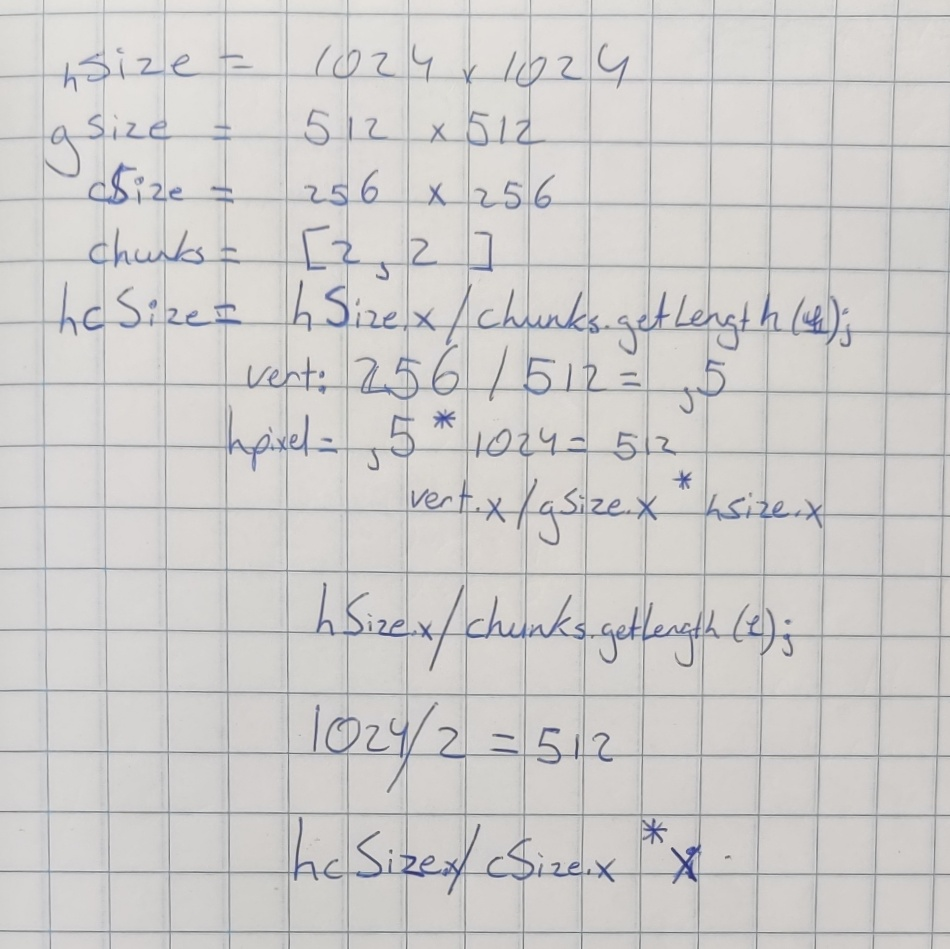 hSize = 1024 x 1024
gSize = 512 x 512
cSize = 256 x 256
chunks = [2, 2]
hcSize = hSize.x/chunks.getLength();
vert: 256 / 512 = ,5
hpixel = ,5 * 1024 = 512
vert.x/gSize.x * hsize.x
hSize.x/chunks.getlength();
1024/2 = 512
hcSize.x/cSize.x * x